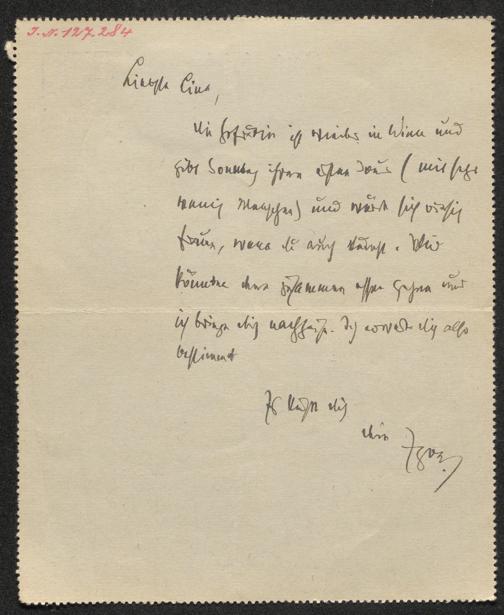 I.N. 127.284
Liebste Lina,
Die               ist wieder in Wien und
gibt Sonntag ihren ersten Jour (mit sehr
wenig Menschen) und würde sich riesig
freuen, wenn du auch kämst. Wir
könnten dann zusammen essen gehen und
ich bringe dich nachhause. Ich erwarte dich also
bestimmt
Es küsst dich
dein